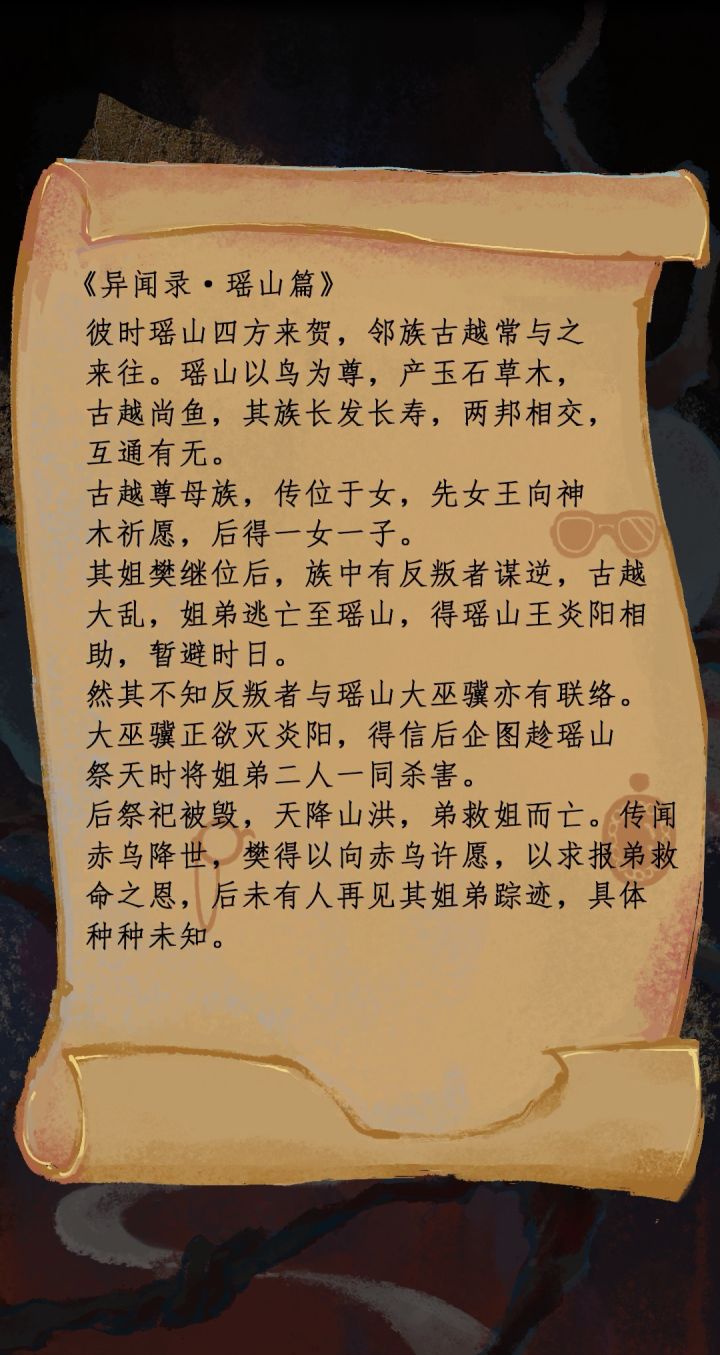 《异闻录·瑶山篇》
彼时瑶山四方来贺，邻族古越常与之
来往。瑶山以鸟为尊，产玉石草木，
古越尚鱼，其族长发长寿，两邦相交，
互通有无。
古越尊母族，传位于女，先女王向神
木祈愿，后得一女一子。
其姐樊继位后，族中有反叛者谋逆，古越
大乱，姐弟逃亡至瑶山，得瑶山王炎阳相
助，暂避时日。
然其不知反叛者与瑶山大巫骥亦有联络。
大巫骥正欲灭炎阳，得信后企图趁瑶山
祭天时将姐弟二人一同杀害。
后祭祀被毁，天降山洪，弟救姐而亡。传闻
赤乌降世，樊得以向赤乌许愿，以求报弟救
命之恩，后未有人再见其姐弟踪迹，具体
种种未知。